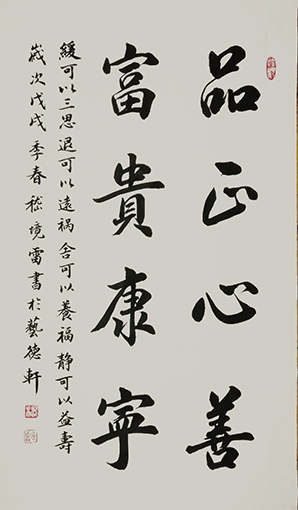 品正心善
富貴康寧
緩可以三思退可以遠禍舍可以養福靜可以益壽
歲次戊戌季春嵇境雷書於藝德軒